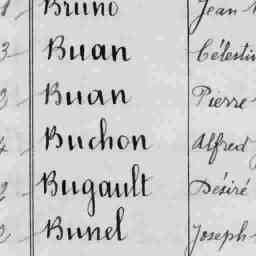 Bruno Jean
3 Buan Célestin
3 Buan Pierre
Buchon Alfred
2 Bugault Désiré
2 Bunel Joseph